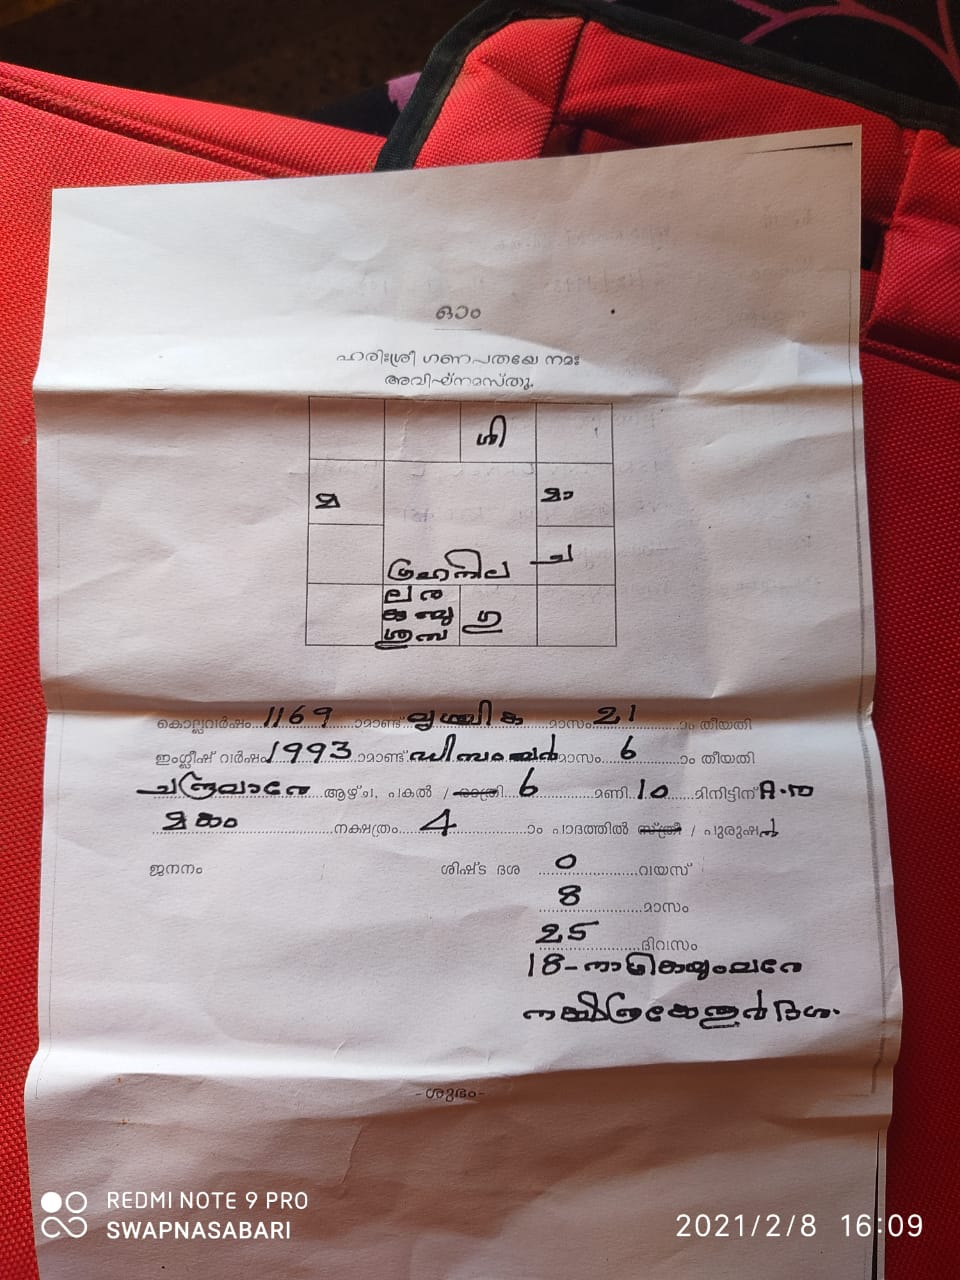 ഓം
ഹരിഃശ്രീ ഗണപതയേ നമഃ
അവിഘ്നമസ്തു.
ശി
മ
മാ
ച
ഗ്രഹനില
ല ര
കു ബു
ശു സ
ഗു
കൊല്ലവർഷം 1169 ാമാണ്ട് വൃശ്ചിക മാസം 21 ാം തീയതി
ഇംഗ്ലീഷ് വർഷം 1993 ാമാണ്ട് ഡിസംബർ മാസം 6 ാം തീയതി
ചന്ദ്രവാരേ ആഴ്ച. പകൽ / രാത്രി 6 മണി 10 മിനിട്ടിന് A.m
മകം നക്ഷത്രം 4 ാം പാദത്തിൽ സ്ത്രീ / പുരുഷൻ
ജനനം ശിഷ്ട ദശ 0 വയസ്
8 മാസം
25 ദിവസം
18-നാഴികയുംവരെ
കേതുർദശ.
-ശുഭം-
REDMI NOTE 9 PRO
SWAPNASABARI
2021/2/8 16:09